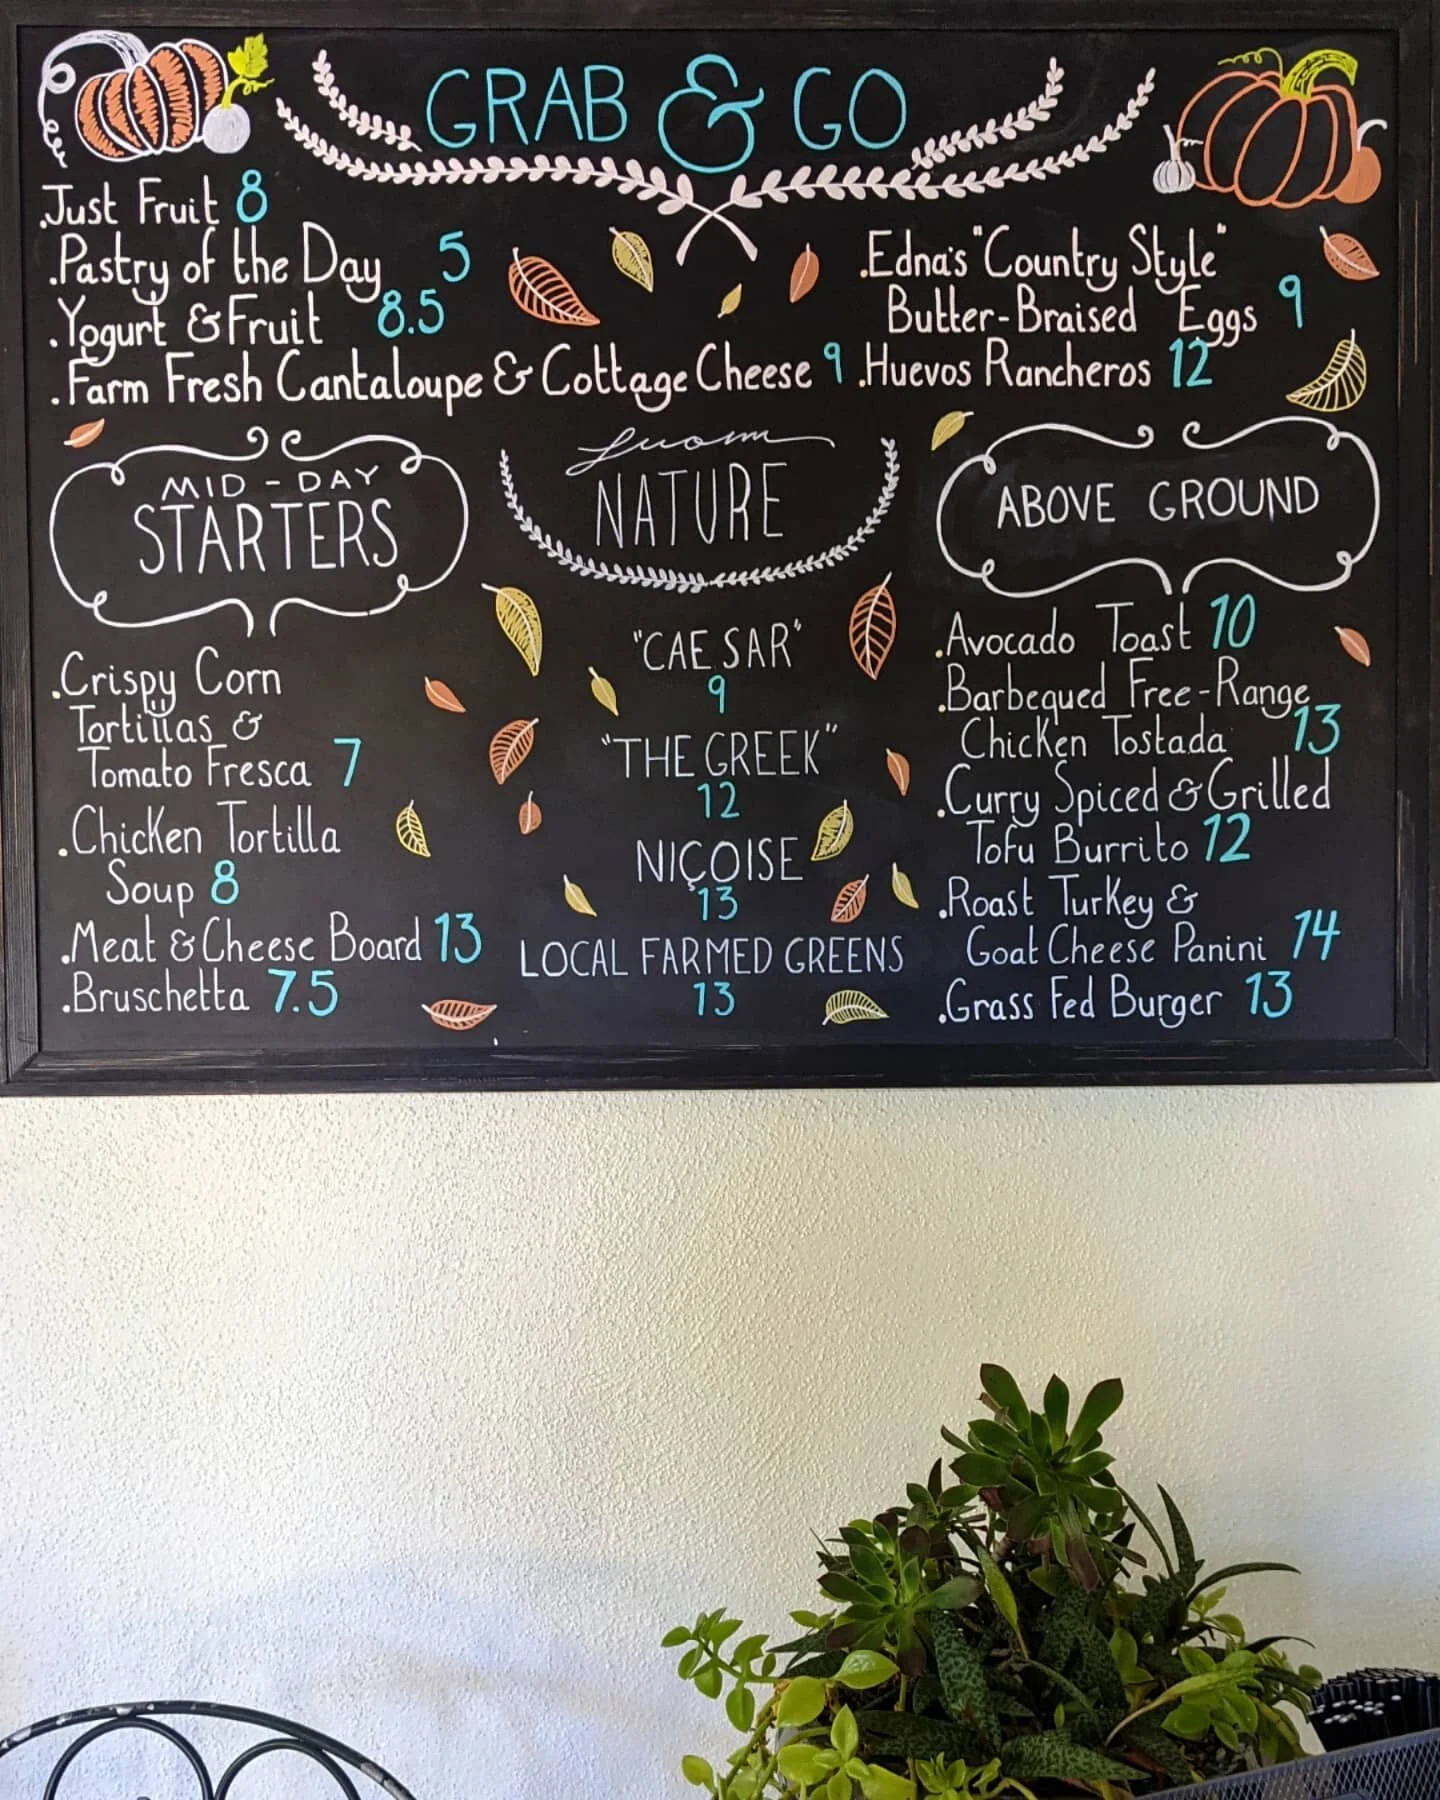 GRAB & GO
.Just Fruit 8
.Pastry of the Day 5
.Yogurt & Fruit 8.5
.Farm Fresh Cantaloupe & Cottage Cheese 9
.Edna's "Country Style"
Butter-Braised Eggs 9
.Huevos Rancheros 12
MID-DAY
STARTERS
.Crispy Corn
Tortillas &
Tomato Fresca 7
.Chicken Tortilla
Soup 8
.Meat & Cheese Board 13
.Bruschetta 7.5
NATURE
"CAESAR"
9
"THE GREEK"
12
NIÇOISE
13
LOCAL FARMED GREENS
13
ABOVE GROUND
.Avocado Toast 10
.Barbequed Free-Range
Chicken Tostada 13
.Curry Spiced & Grilled
Tofu Burrito 12
.Roast Turkey &
Goat Cheese Panini 14
.Grass Fed Burger 13